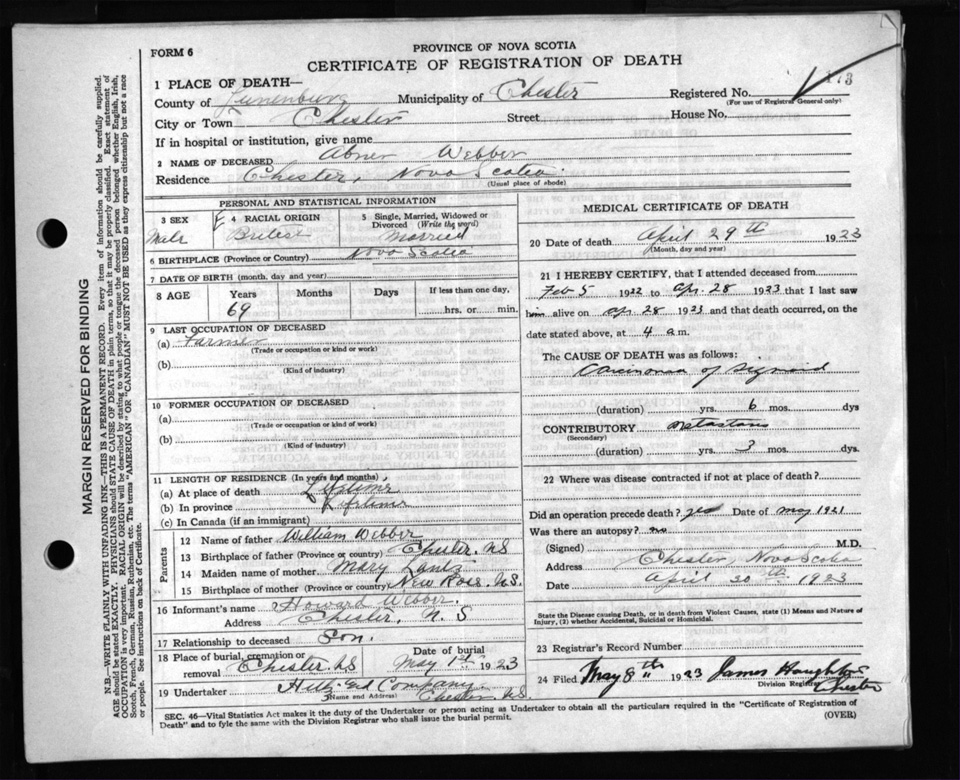 FORM 6
PROVINCE OF NOVA SCOTIA
CERTIFICATE OF REGISTRATION OF DEATH
173
1 PLACE OF DEATH—
County of Lunenburg Municipality of Chester Registered No.
(For use of Registrar General only)
City or Town Chester Street House No.
If in hospital or institution, give name
2 NAME OF DECEASED Abner Webber
Residence Chester, Nova Scotia
(Usual place of abode)
PERSONAL AND STATISTICAL INFORMATION
3 SEX Male
4 RACIAL ORIGIN British
5 Single, Married, Widowed or Divorced (Write the word) Married
6 BIRTHPLACE (Province or Country) Nova Scotia
7 DATE OF BIRTH (month, day and year)
8 AGE Years Months Days If less than one day,
69 hrs. or min.
9 LAST OCCUPATION OF DECEASED
(a) Farmer
(Trade or occupation or kind or work)
(b)
(Kind of industry)
10 FORMER OCCUPATION OF DECEASED
(a)
(Trade or occupation or kind of work)
(b)
(Kind of industry)
11 LENGTH OF RESIDENCE (In years and months)
(a) At place of death Lifetime
(b) In province Lifetime
(c) In Canada (if an immigrant)
Parents
12 Name of father William Webber
13 Birthplace of father (Province or country) Chester, NS
14 Maiden name of mother Mary
15 Birthplace of mother (Province or country) New Ross, N.S.
16 Informant's name Howard Webber.
Address Chester, N. S
17 Relationship to deceased Son.
18 Place of burial, cremation or removal Chester. NS Date of burial May 1st 1923
19 Undertaker Company. Chester NS.
(Name and Address)
MEDICAL CERTIFICATE OF DEATH
20 Date of death April 29th 1923
(Month, day and year)
21 I HEREBY CERTIFY, that I attended deceased from
Feb 5 1922 to Apr. 28 1923 that I last saw
him alive on Apr. 28 1923 and that death occurred, on the
date stated above, at 4 a.m.
The CAUSE OF DEATH was as follows:
Carcinoma of sigmoid
(duration) yrs. 6 mos. dys
CONTRIBUTORY metastasis
(Secondary)
(duration) yrs. 3 mos. dys
22 Where was disease contracted if not at place of death?
Did an operation precede death? yes Date of May 1921
Was there an autopsy? no
(Signed) M.D.
Address Chester, Nova Scotia
Date April 30th 1923
State the Disease causing Death, or in death from Violent Causes, state (1) Means and Nature of
Injury, (2) whether Accidental, Suicidal or Homicidal.
23 Registrar's Record Number
24 Filed May 8th 1923 James Haughton
Division Registrar
Chester
SEC. 46—Vital Statistics Act makes it the duty of the Undertaker or person acting as Undertaker to obtain all the particulars required in the "Certificate of Registration of
Death" and to fyle the same with the Division Registrar who shall issue the burial permit. (OVER)
MARGIN RESERVED FOR BINDING
N.B—WRITE PLAINLY WITH UNFADING INK—THIS IS A PERMANENT RECORD. Every item of information should be carefully supplied.
AGE should be stated EXACTLY. PHYSICIANS should STATE CAUSE OF DEATH in plain terms, so that it may be properly classified. Exact statement of
OCCUPATION is very important. RACIAL ORIGIN will be described by stating to what people or tongue the deceased person belonged whether English, Irish,
Scotch, French, German, Russian, Ruthenian, etc. The terms "AMERICAN" OR "CANADIAN" MUST NOT BE USED as they express citizenship but not a race
or people. See instructions on back of Certificate.